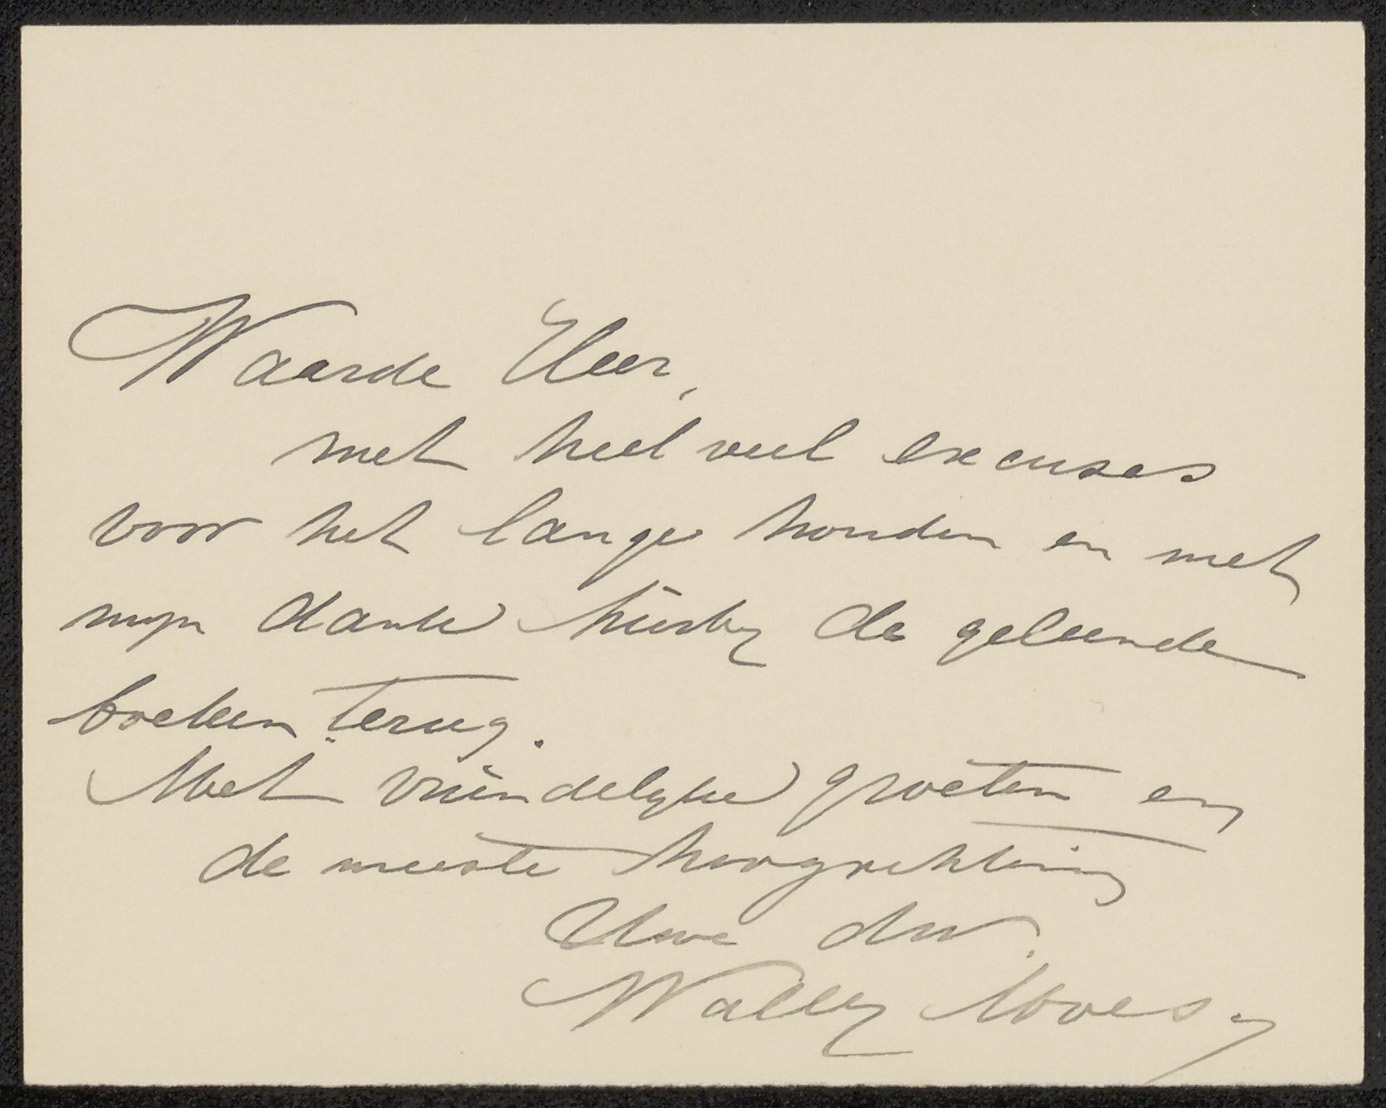 Waarde Heer,
met heel veel excuses
voor het lange houden en met
mijn dank hierbij de geleende
boeken terug.
Met vriendelijke groeten en
de meeste hoogachting
Uwe dw.
Wally Moes.